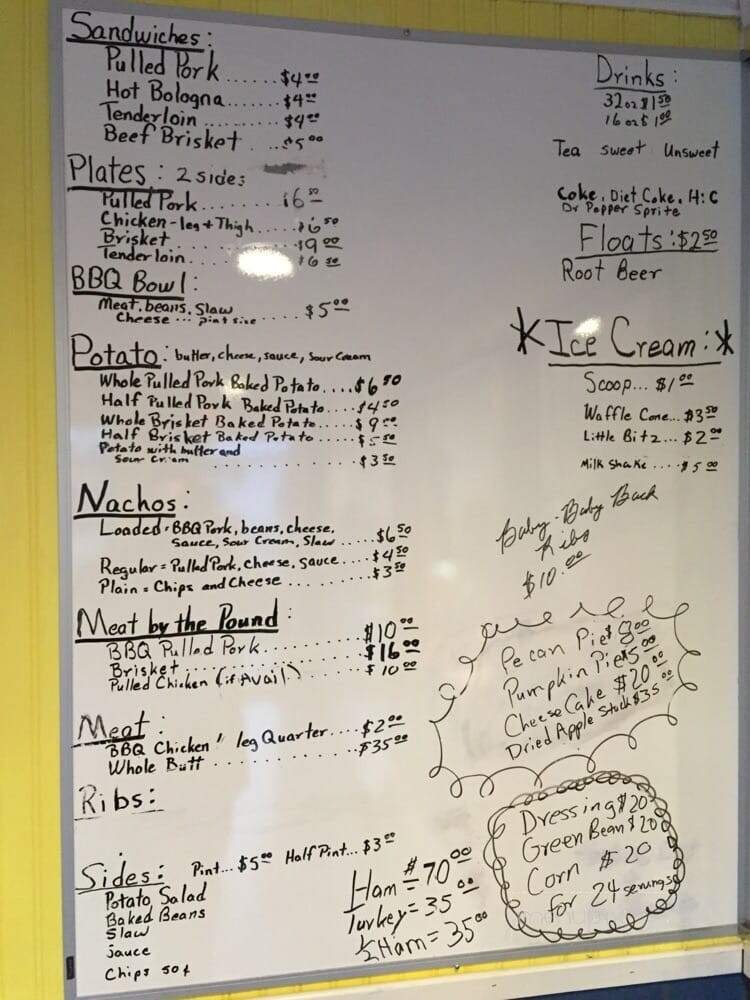 Sandwiches:
Pulled Pork ...... $4⁰⁰
Hot Bologna....... $4⁰⁰
Tenderloin ....... $4⁰⁰
Beef Brisket ... $5⁰⁰
Plates: 2 sides
Pulled Pork ........ $6⁵⁰
Chicken - leg + Thigh.... $6⁵⁰
Brisket .......... $9⁰⁰
Tenderloin. ........ $6⁵⁰
BBQ Bowl:
Meat, beans, Slaw
Cheese ... pint size ..... $5⁰⁰
Potato: butter, cheese, sauce, Sour Cream
Whole Pulled Pork Baked Potato .... $6⁵⁰
Half Pulled Pork Baked Potato.... $4⁵⁰
Whole Brisket Baked Potato..... $9⁰⁰
Half Brisket Baked Potato .... $5⁵⁰
Potato with butter and
Sour Cream .......... $3⁵⁰
Nachos:
Loaded = BBQ Pork, beans, cheese,
Sauce, Sour Cream, Slaw .... $6⁵⁰
Regular = Pulled Pork, cheese, sauce .... $4⁵⁰
Plain = Chips and Cheese ....... $3⁵⁰
Meat by the Pound:
BBQ Pulled Pork........... $10⁰⁰
Brisket ............. $16⁰⁰
Pulled Chicken (if Avail) ...... $10⁰⁰
Meat:
BBQ Chicken " leg Quarter.... $2⁰⁰
Whole Butt ............ $35⁰⁰
Ribs:
Sides: Pint... $5⁰⁰ Half Pint... $3⁰⁰
Potato Salad
Baked Beans
Slaw
sauce
Chips 50¢
Ham = $70⁰⁰
Turkey = 35⁰⁰
½ Ham = 35⁰⁰
Drinks:
32 oz $1⁵⁰
16 oz $1⁰⁰
Tea sweet Unsweet
Coke, Diet Coke, Hi C
Dr Pepper Sprite
Floats: $2⁵⁰
Root Beer
*Ice Cream:*
Scoop... $1⁰⁰
Waffle Cone... $3⁵⁰
Little Bitz... $2⁰⁰
Milk Shake .... $5⁰⁰
Baby - Baby Back
Ribs
$10.⁰⁰
Pecan Pie $8⁰⁰
Pumpkin Pie $5⁰⁰
Cheese Cake $20⁰⁰
Dried Apple Stack $35⁰⁰
Dressing $20
Green Bean $20
Corn $20
for 24 servings